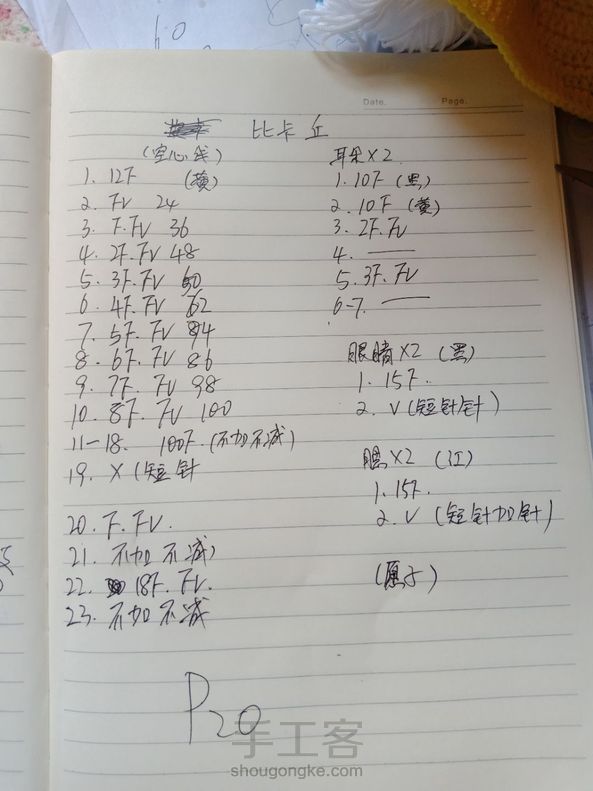 6.0
Date. Page.
比卡丘
(空心线)
1. 12F (黄)
2. FV 24
3. F.FV 36
4. 2F.FV 48
5. 3F.FV 60
6. 4F.FV 62
7. 5F.FV 94
8. 6F.FV 86
9. 7F.FV 98
10. 8F.FV 100
11-18. 100F.(不加不减)
19. X (短针
20. F.FV.
21. 不加不减)
22. 18F.FV.
23. 不加不减
耳朵X2
1. 10F (黑)
2. 10F (黄)
3. 2F.FV
4. —
5. 3F.FV
6-7. —
眼睛X2 (黑)
1. 15F.
2. V (短针针)
腮X2 (江)
1. 15F.
2. V (短针加针)
P20
手工客
shougongke.com